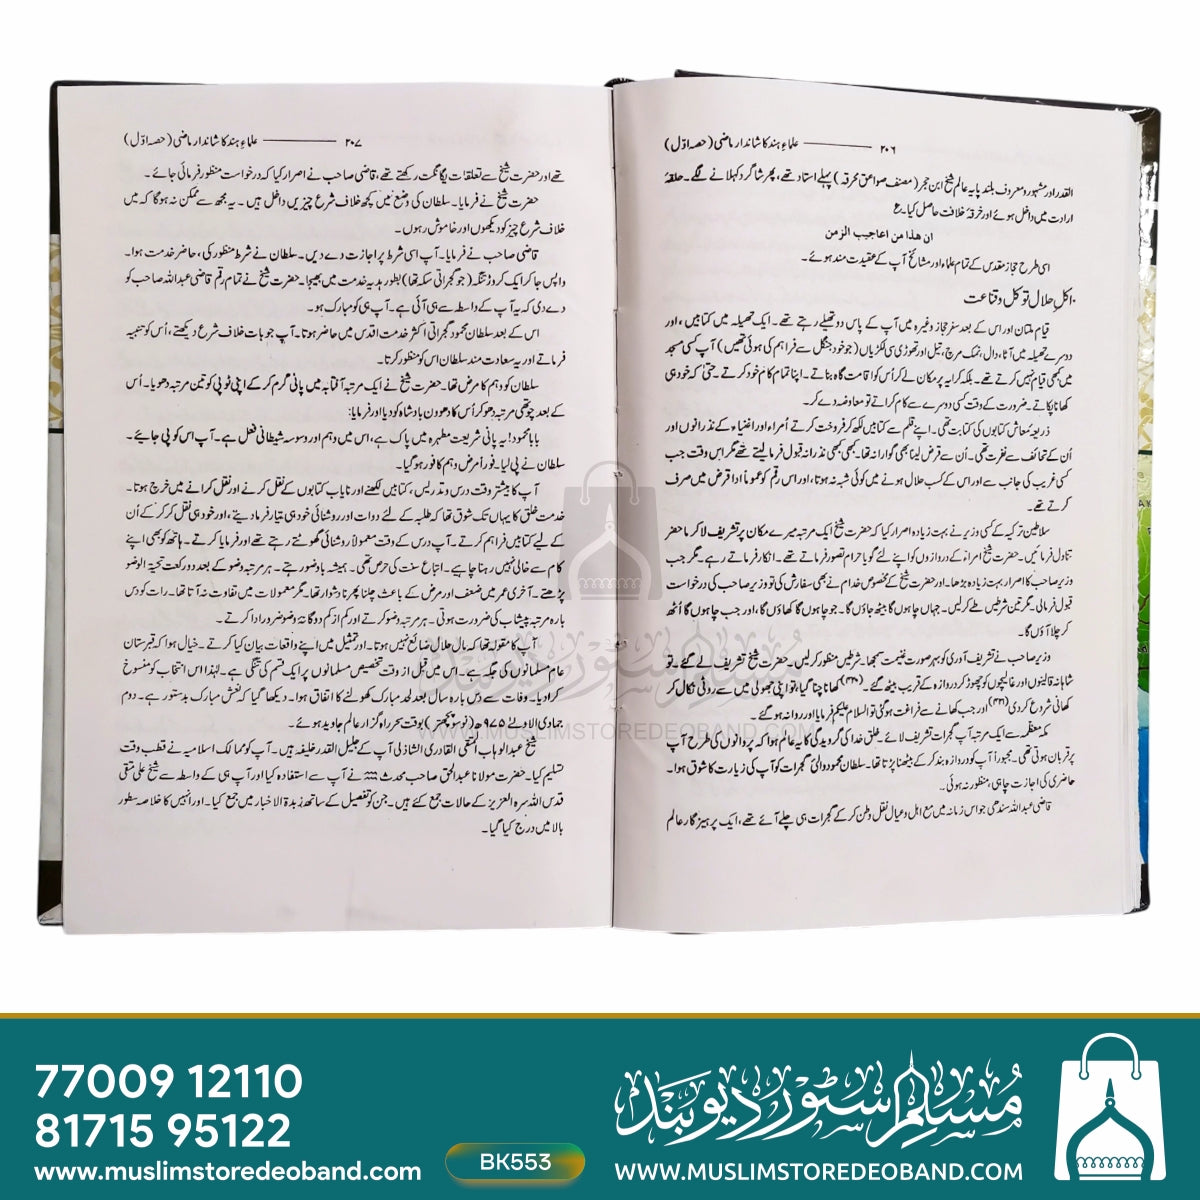 علماءِ ہند کا شاندار ماضی (حصہ اوّل) ۲۰۶
القدر اور مشہور و معروف بلند پایہ عالم شیخ ابن حجر (مصنف صواعق محرقہ) پہلے استاد تھے، پھر شاگرد کہلانے لگے۔ حلقۂ
ارادت میں داخل ہوئے اور خرقۂ خلافت حاصل کیا۔ ع
ان ھذا من اعاجیب الزمن
اسی طرح حجاز مقدس کے تمام علماء اور مشائخ آپ کے عقیدت مند ہوئے۔
اکلِ حلال تو کل و قناعت
قیام ملتان اور اس کے بعد سفر حجاز وغیرہ میں آپ کے پاس دو تھیلے رہتے تھے۔ ایک تھیلہ میں کتابیں، اور
دوسرے تھیلہ میں آٹا، دال، نمک مرچ، تیل اور تھوڑی سی لکڑیاں (جو خود جنگل سے فراہم کی ہوئی تھیں) آپ کسی مسجد
میں کبھی قیام نہیں کرتے تھے۔ بلکہ کرایہ پر مکان لے کر اُس کو اقامت گاہ بناتے۔ اپنا تمام کام خود کرتے۔ حتیٰ کہ خود ہی
کھانا پکاتے۔ ضرورت کے وقت کسی دوسرے سے کام کراتے تو معاوضہ دے کر۔
ذریعۂ معاش کتابوں کی کتابت تھی۔ اپنے قلم سے کتابیں لکھ کر فروخت کرتے اُمراء اور اغنیاء کے نذرانوں اور
اُن کے تحائف سے نفرت تھی۔ اُن سے قرض لینا بھی گوارا نہ تھا۔ کبھی کبھی نذرانہ قبول فرما لیتے تھے مگر اس وقت جب
کسی غریب کی جانب سے اور اس کے کسب حلال ہونے میں کوئی شبہ نہ ہوتا، اور اس رقم کو عموماً ادا قرض میں صرف
کرتے تھے۔
سلاطین ترکیہ کے کسی وزیر نے بہت زیادہ اصرار کیا کہ حضرت شیخ ایک مرتبہ میرے مکان پر تشریف لا کر ما حضر
تناول فرمائیں۔ حضرت شیخ امراء کے دروازوں کو اپنے لئے گویا حرام تصور فرماتے تھے۔ انکار فرماتے رہے۔ مگر جب
وزیر صاحب کا اصرار بہت زیادہ بڑھا۔ اور حضرت شیخ کے مخصوص خدام نے بھی سفارش کی تو وزیر صاحب کی درخواست
قبول فرمائی۔ مگر تین شرطیں طے کر لیں۔ جہاں چاہوں گا بیٹھ جاؤں گا۔ جو چاہوں گا کھاؤں گا، اور جب چاہوں گا اُٹھ
کر چلا آؤں گا۔
وزیر صاحب نے تشریف آوری کو بہر صورت غنیمت سمجھا۔ شرطیں منظور کر لیں۔ حضرت شیخ تشریف لے گئے۔ تو
شاہانہ قالینوں اور غالیچوں کو چھوڑ کر دروازہ کے قریب بیٹھ گئے۔ کھانا چنا گیا، تو اپنی جھولی میں سے روٹی نکال کر
کھانی شروع کر دی اور جب کھانے سے فراغت ہو گئی تو السلام علیکم فرمایا اور روانہ ہو گئے۔
مکہ معظمہ سے ایک مرتبہ آپ گجرات تشریف لائے۔ خلق خدا کی گرویدگی کا یہ عالم ہوا کہ پروانوں کی طرح آپ
پر قربان ہوتی تھی۔ مجبوراً آپ کو دروازہ بند کر کے بیٹھنا پڑتا تھا۔ سلطان محمود والیٔ گجرات کو آپ کی زیارت کا شوق ہوا۔
حاضری کی اجازت چاہی، منظور نہ ہوئی۔
قاضی عبداللہ سندھی جو اس زمانہ میں مع اہل و عیال نقل وطن کر کے گجرات ہی چلے آئے تھے، ایک پرہیزگار عالم
علماءِ ہند کا شاندار ماضی (حصہ اوّل) ۲۰۷
تھے اور حضرت شیخ سے تعلقات یگانگت رکھتے تھے، قاضی صاحب نے اصرار کیا کہ درخواست منظور فرمائی جائے۔
حضرت شیخ نے فرمایا۔ سلطان کی وضع میں کچھ خلاف شرع چیزیں داخل ہیں۔ یہ مجھ سے ممکن نہ ہو گا کہ میں
خلاف شرع چیز کو دیکھوں اور خاموش رہوں۔
قاضی صاحب نے فرمایا۔ آپ اسی شرط پر اجازت دے دیں۔ سلطان نے شرط منظور کی، حاضر خدمت ہوا۔
واپس جا کر ایک کروڑ تنکہ (جو گجراتی سکہ تھا) بطور ہدیہ خدمت میں بھیجا۔ حضرت شیخ نے تمام رقم قاضی عبداللہ صاحب کو
دے دی کہ یہ آپ کے واسطہ سے ہی آئی ہے۔ آپ ہی کو مبارک ہو۔
اس کے بعد سلطان محمود گجراتی اکثر خدمت اقدس میں حاضر ہوتا۔ آپ جو بات خلاف شرع دیکھتے، اُس کو تنبیہ
فرماتے اور یہ سعادت مند سلطان اس کو منظور کرتا۔
سلطان کو وہم کا مرض تھا۔ حضرت شیخ نے ایک مرتبہ آفتابہ میں پانی گرم کر کے اپنی ٹوپی کو تین مرتبہ دھویا۔ اُس
کے بعد چوتھی مرتبہ دھو کر اُس کا دھوون بادشاہ کو دیا اور فرمایا:
بابا محمود! یہ پانی شریعت مطہرہ میں پاک ہے، اس میں وہم اور وسوسہ شیطانی فعل ہے۔ آپ اس کو پی جائیے۔
سلطان نے پی لیا۔ فوراً مرض وہم کافور ہو گیا۔
آپ کا بیشتر وقت درس و تدریس، کتابیں لکھنے اور نایاب کتابوں کے نقل کرنے اور نقل کرانے میں خرچ ہوتا۔
خدمت خلق کا یہاں تک شوق تھا کہ طلبہ کے لئے دوات اور روشنائی خود ہی تیار فرما دیتے، اور خود ہی نقل کر کر کے اُن
کے لیے کتابیں فراہم کرتے۔ آپ درس کے وقت معمولاً روشنائی گھونٹتے رہتے تھے اور فرمایا کرتے۔ ہاتھ کو بھی اپنے
کام سے خالی نہیں رہنا چاہیے۔ اتباع سنت کی حرص تھی۔ ہمیشہ باوضو رہتے۔ ہر مرتبہ وضو کے بعد دو رکعت تحیۃ الوضو
پڑھتے۔ آخری عمر میں ضعف اور مرض کے باعث چلنا پھرنا دشوار تھا۔ مگر معمولات میں تفاوت نہ آتا تھا۔ رات کو دس
بارہ مرتبہ پیشاب کی ضرورت ہوتی۔ ہر مرتبہ وضو کرتے اور کم از کم دوگانہ وضو ضرور ادا کرتے۔
آپ کا مقولہ تھا کہ مال حلال ضائع نہیں ہوتا۔ اور تمثیل میں اپنے واقعات بیان کیا کرتے۔ خیال ہوا کہ قبرستان
عام مسلمانوں کی جگہ ہے۔ اس میں قبل از وقت تخصیص مسلمانوں پر ایک قسم کی تنگی ہے۔ لہٰذا اس انتخاب کو منسوخ
کرا دیا۔ وفات سے دس بارہ سال بعد لحد مبارک کھولنے کا اتفاق ہوا۔ دیکھا گیا کہ نعش مبارک بدستور ہے۔ دوم
جمادی الاولےٰ ۹۷۵ھ (نو سو پچھتر) بوقت سحر راہ گزار عالم جاوید ہوئے۔
شیخ عبدالوہاب المتقی القادری الشاذلی آپ کے جلیل القدر خلیفہ ہیں۔ آپ کو ممالک اسلامیہ نے قطب وقت
تسلیم کیا۔ حضرت مولانا عبدالحق صاحب محدث نے آپ سے استفادہ کیا اور آپ ہی کے واسطہ سے شیخ علی متقی
قدس اللہ سرہ العزیز کے حالات جمع کئے ہیں۔ جن کو تفصیل کے ساتھ زبدۃ الاخبار میں جمع کیا۔ اور انہیں کا خلاصہ سطور
بالا میں درج کیا گیا۔
مسلم سٹور دیوبند
WWW.MUSLIMSTOREDEOBAND.COM
77009 12110
81715 95122
www.muslimstoredeoband.com
BK553
مسلم سٹور دیوبند
WWW.MUSLIMSTOREDEOBAND.COM